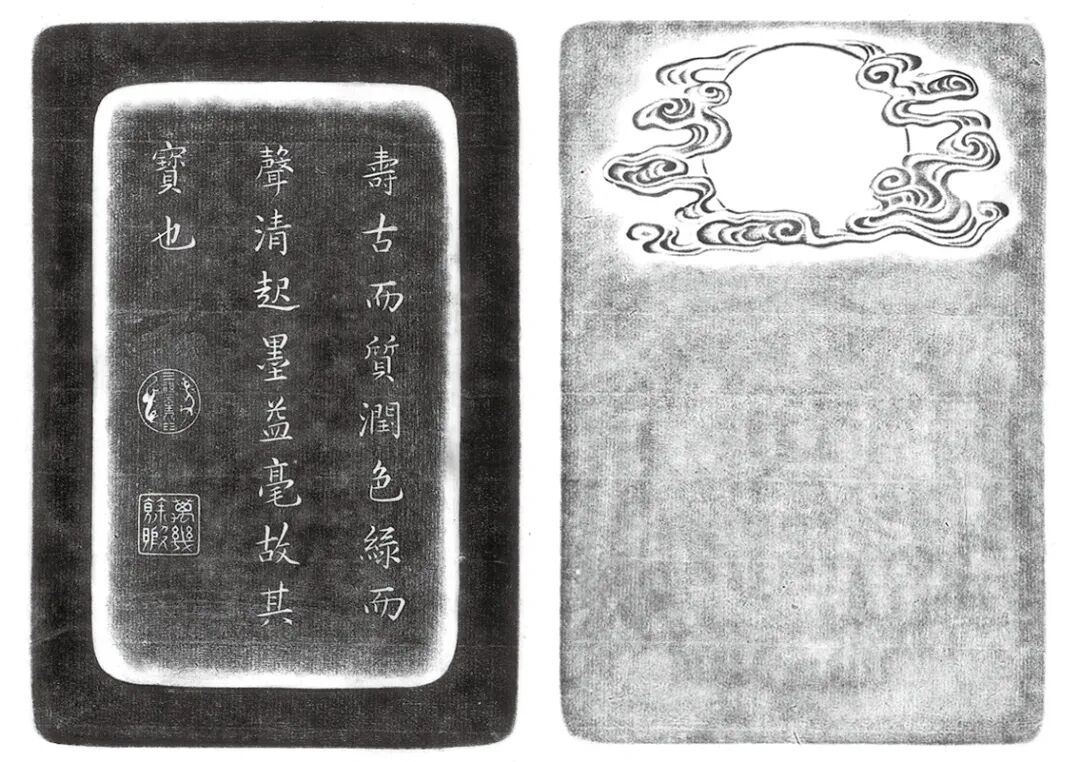 壽古而質潤色綠而
聲清起墨益毫故其
寶也
萬幾餘暇